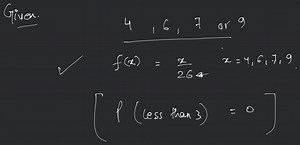 Given
4 , 6 , 7 or 9
✓ f(x) = x/26 x = 4, 6, 7, 9
[ P (less than 3) = 0 ]